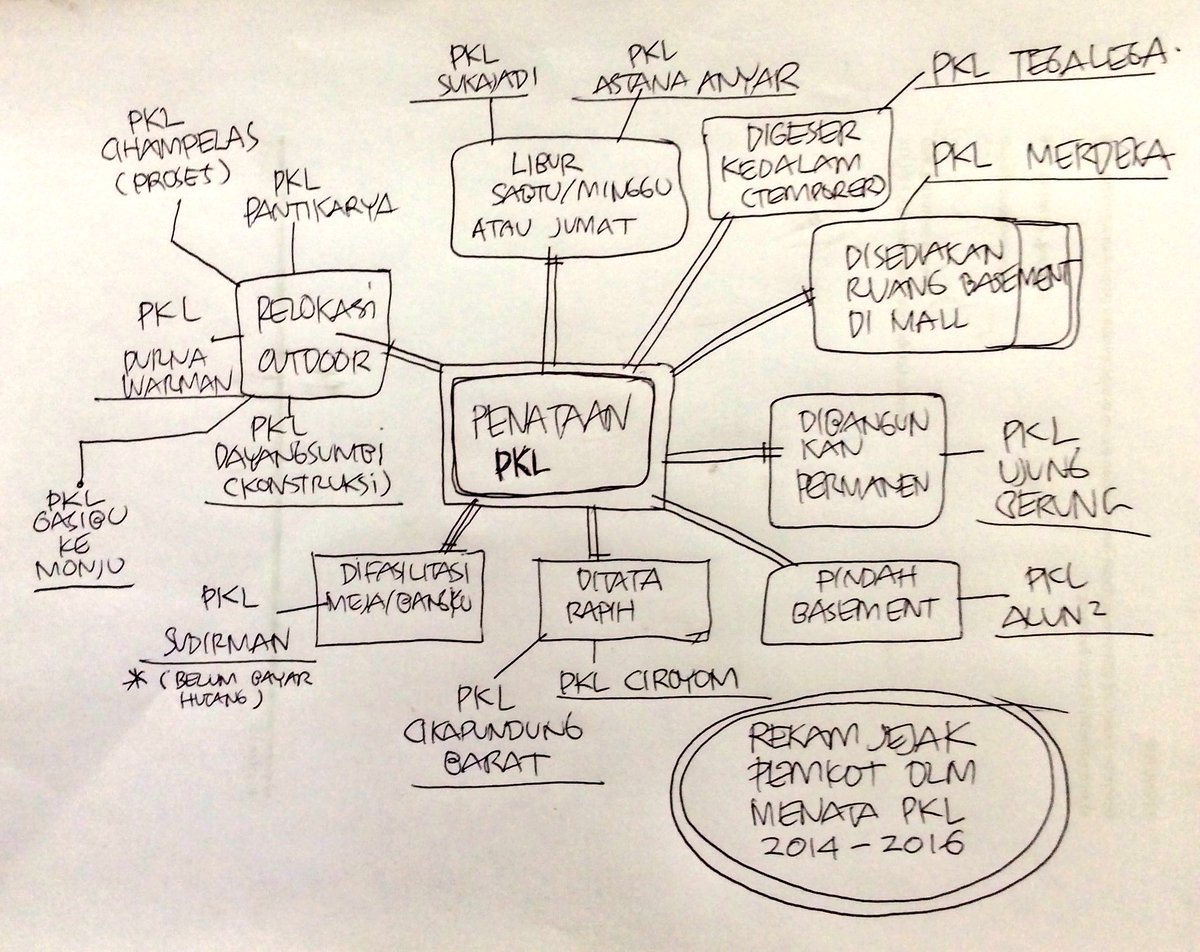 PKL
SUKAJADI
PKL
ASTANA ANYAR
PKL TEGALEGA.
PKL
CIHAMPELAS
(PROSES)
PKL
PANTIKARYA
LIBUR
SABTU/MINGGU
ATAU JUMAT
DIGESER
KEDALAM
(TEMPORER)
PKL MERDEKA
DISEDIAKAN
RUANG BASEMENT
DI MALL
RELOKASI
OUTDOOR
PKL
PURNA
WARMAN
PKL
DAYANGSUMBI
(KONSTRUKSI)
PKL
GASIBU
KE
MONJU
PENATAAN
PKL
DIBANGUN
KAN
PERMANEN
PKL
UJUNG
BERUNG
DIFASILITASI
MEJA/BANGKU
PKL
SUDIRMAN
* (BELUM BAYAR
HUTANG)
DITATA
RAPIH
PKL CIROYOM
PKL
CIKAPUNDUNG
BARAT
PINDAH
BASEMENT
PKL
ALUN2
REKAM JEJAK
PEMKOT DLM
MENATA PKL
2014 - 2016